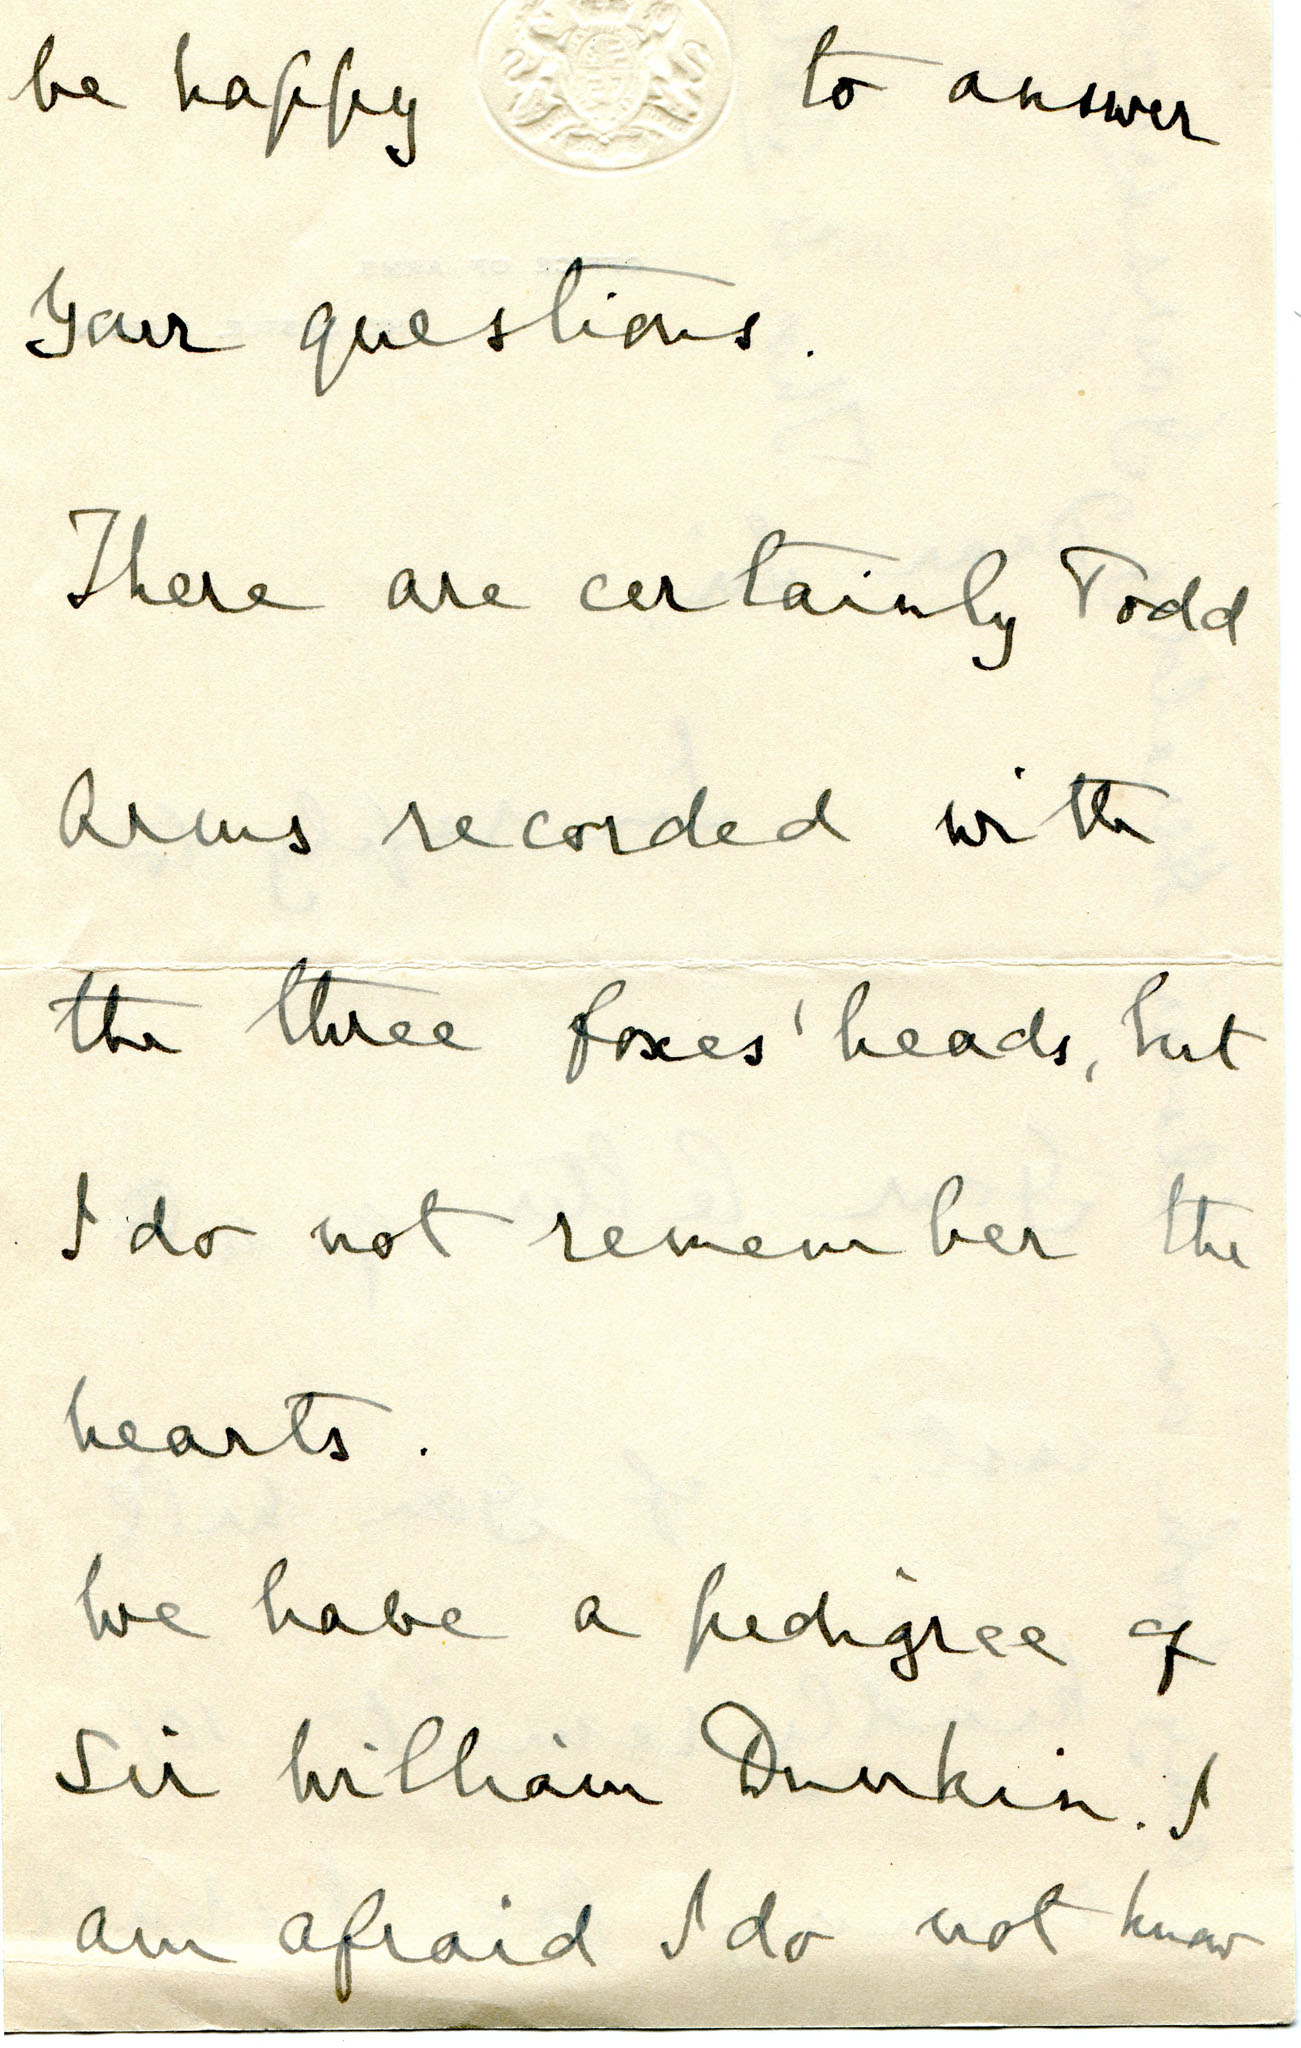 be happy to answer
your questions.
There are certainly Todd
Arms recorded with
the three foxes' heads, but
I do not remember the
hearts.
We have a pedigree of
Sir William Dunkin. I
am afraid I do not know